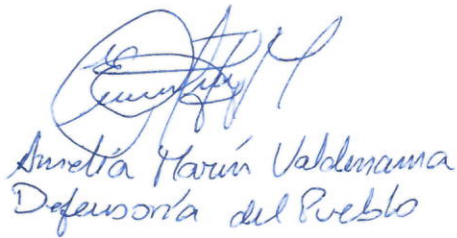 Amelia Marín Valderrama
Defensoría del Pueblo